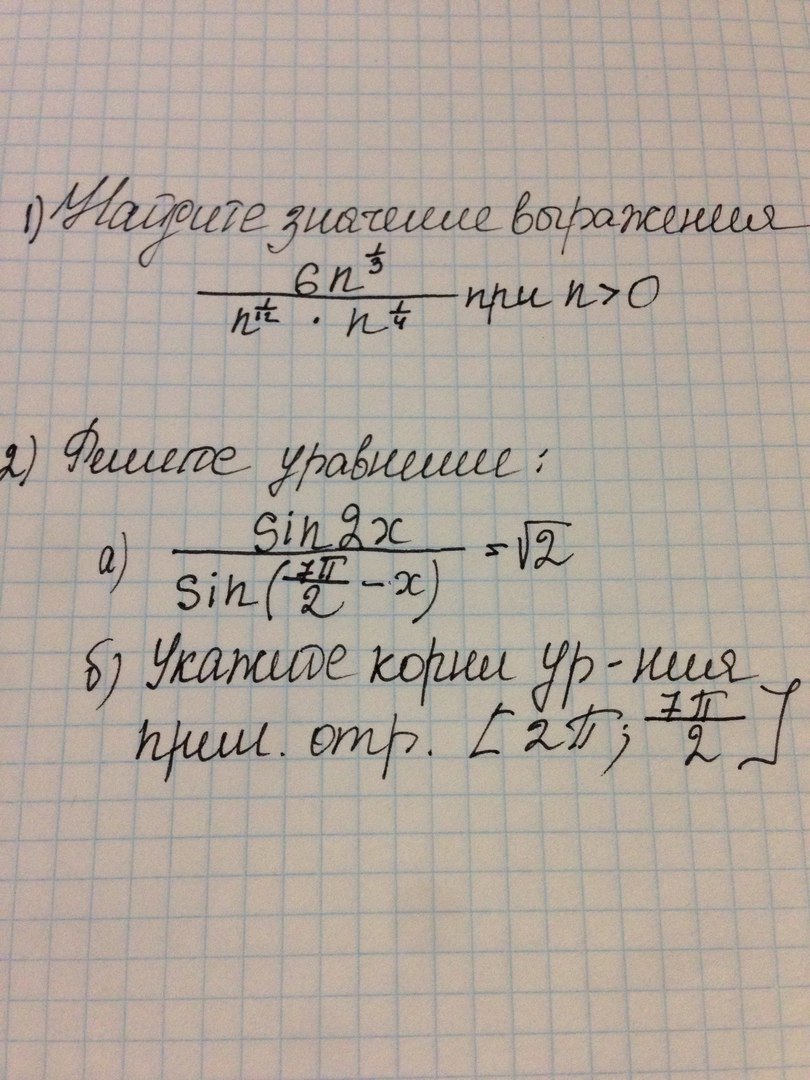 1) Найдите значение выражения
6n^{1/3} / (n^{1/12} · n^{1/4}) при n>0
2) Решите уравнение:
а) sin2x / sin(7π/2 - x) = √2
б) Укажите корни ур-ния
прин. отр. [2π; 7π/2]